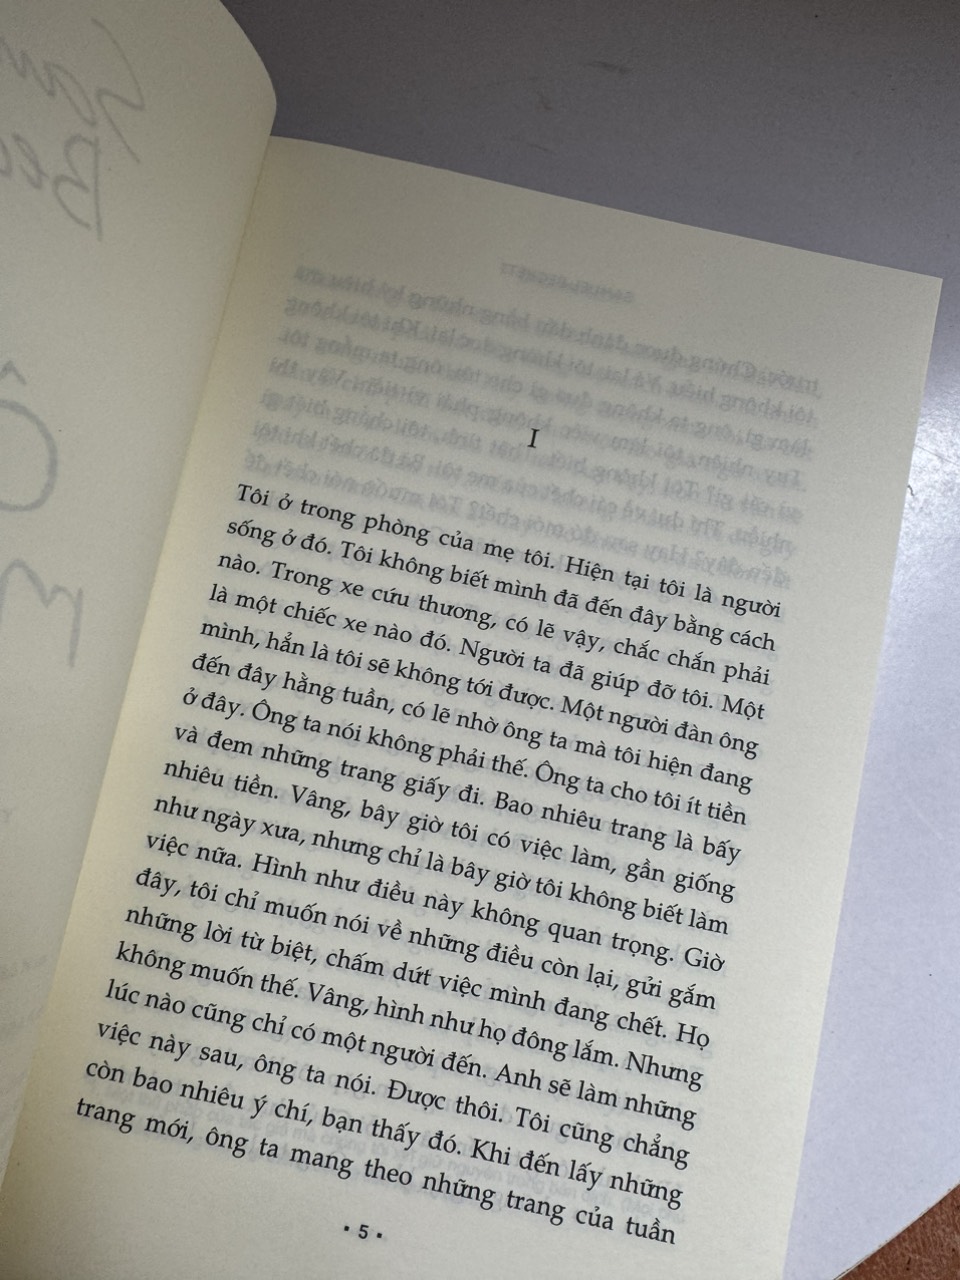 I
Tôi ở trong phòng của mẹ tôi. Hiện tại tôi là người
sống ở đó. Tôi không biết mình đã đến đây bằng cách
nào. Trong xe cứu thương, có lẽ vậy, chắc chắn phải
là một chiếc xe nào đó. Người ta đã giúp đỡ tôi. Một
mình, hẳn là tôi sẽ không tới được. Một người đàn ông
đến đây hằng tuần, có lẽ nhờ ông ta mà tôi hiện đang
ở đây. Ông ta nói không phải thế. Ông ta cho tôi ít tiền
và đem những trang giấy đi. Bao nhiêu trang là bấy
nhiêu tiền. Vâng, bây giờ tôi có việc làm, gần giống
như ngày xưa, nhưng chỉ là bây giờ tôi không biết làm
việc nữa. Hình như điều này không quan trọng. Giờ
đây, tôi chỉ muốn nói về những điều còn lại, gửi gắm
những lời từ biệt, chấm dứt việc mình đang chết. Họ
không muốn thế. Vâng, hình như họ đông lắm. Nhưng
lúc nào cũng chỉ có một người đến. Anh sẽ làm những
việc này sau, ông ta nói. Được thôi. Tôi cũng chẳng
còn bao nhiêu ý chí, bạn thấy đó. Khi đến lấy những
trang mới, ông ta mang theo những trang của tuần
• 5 •